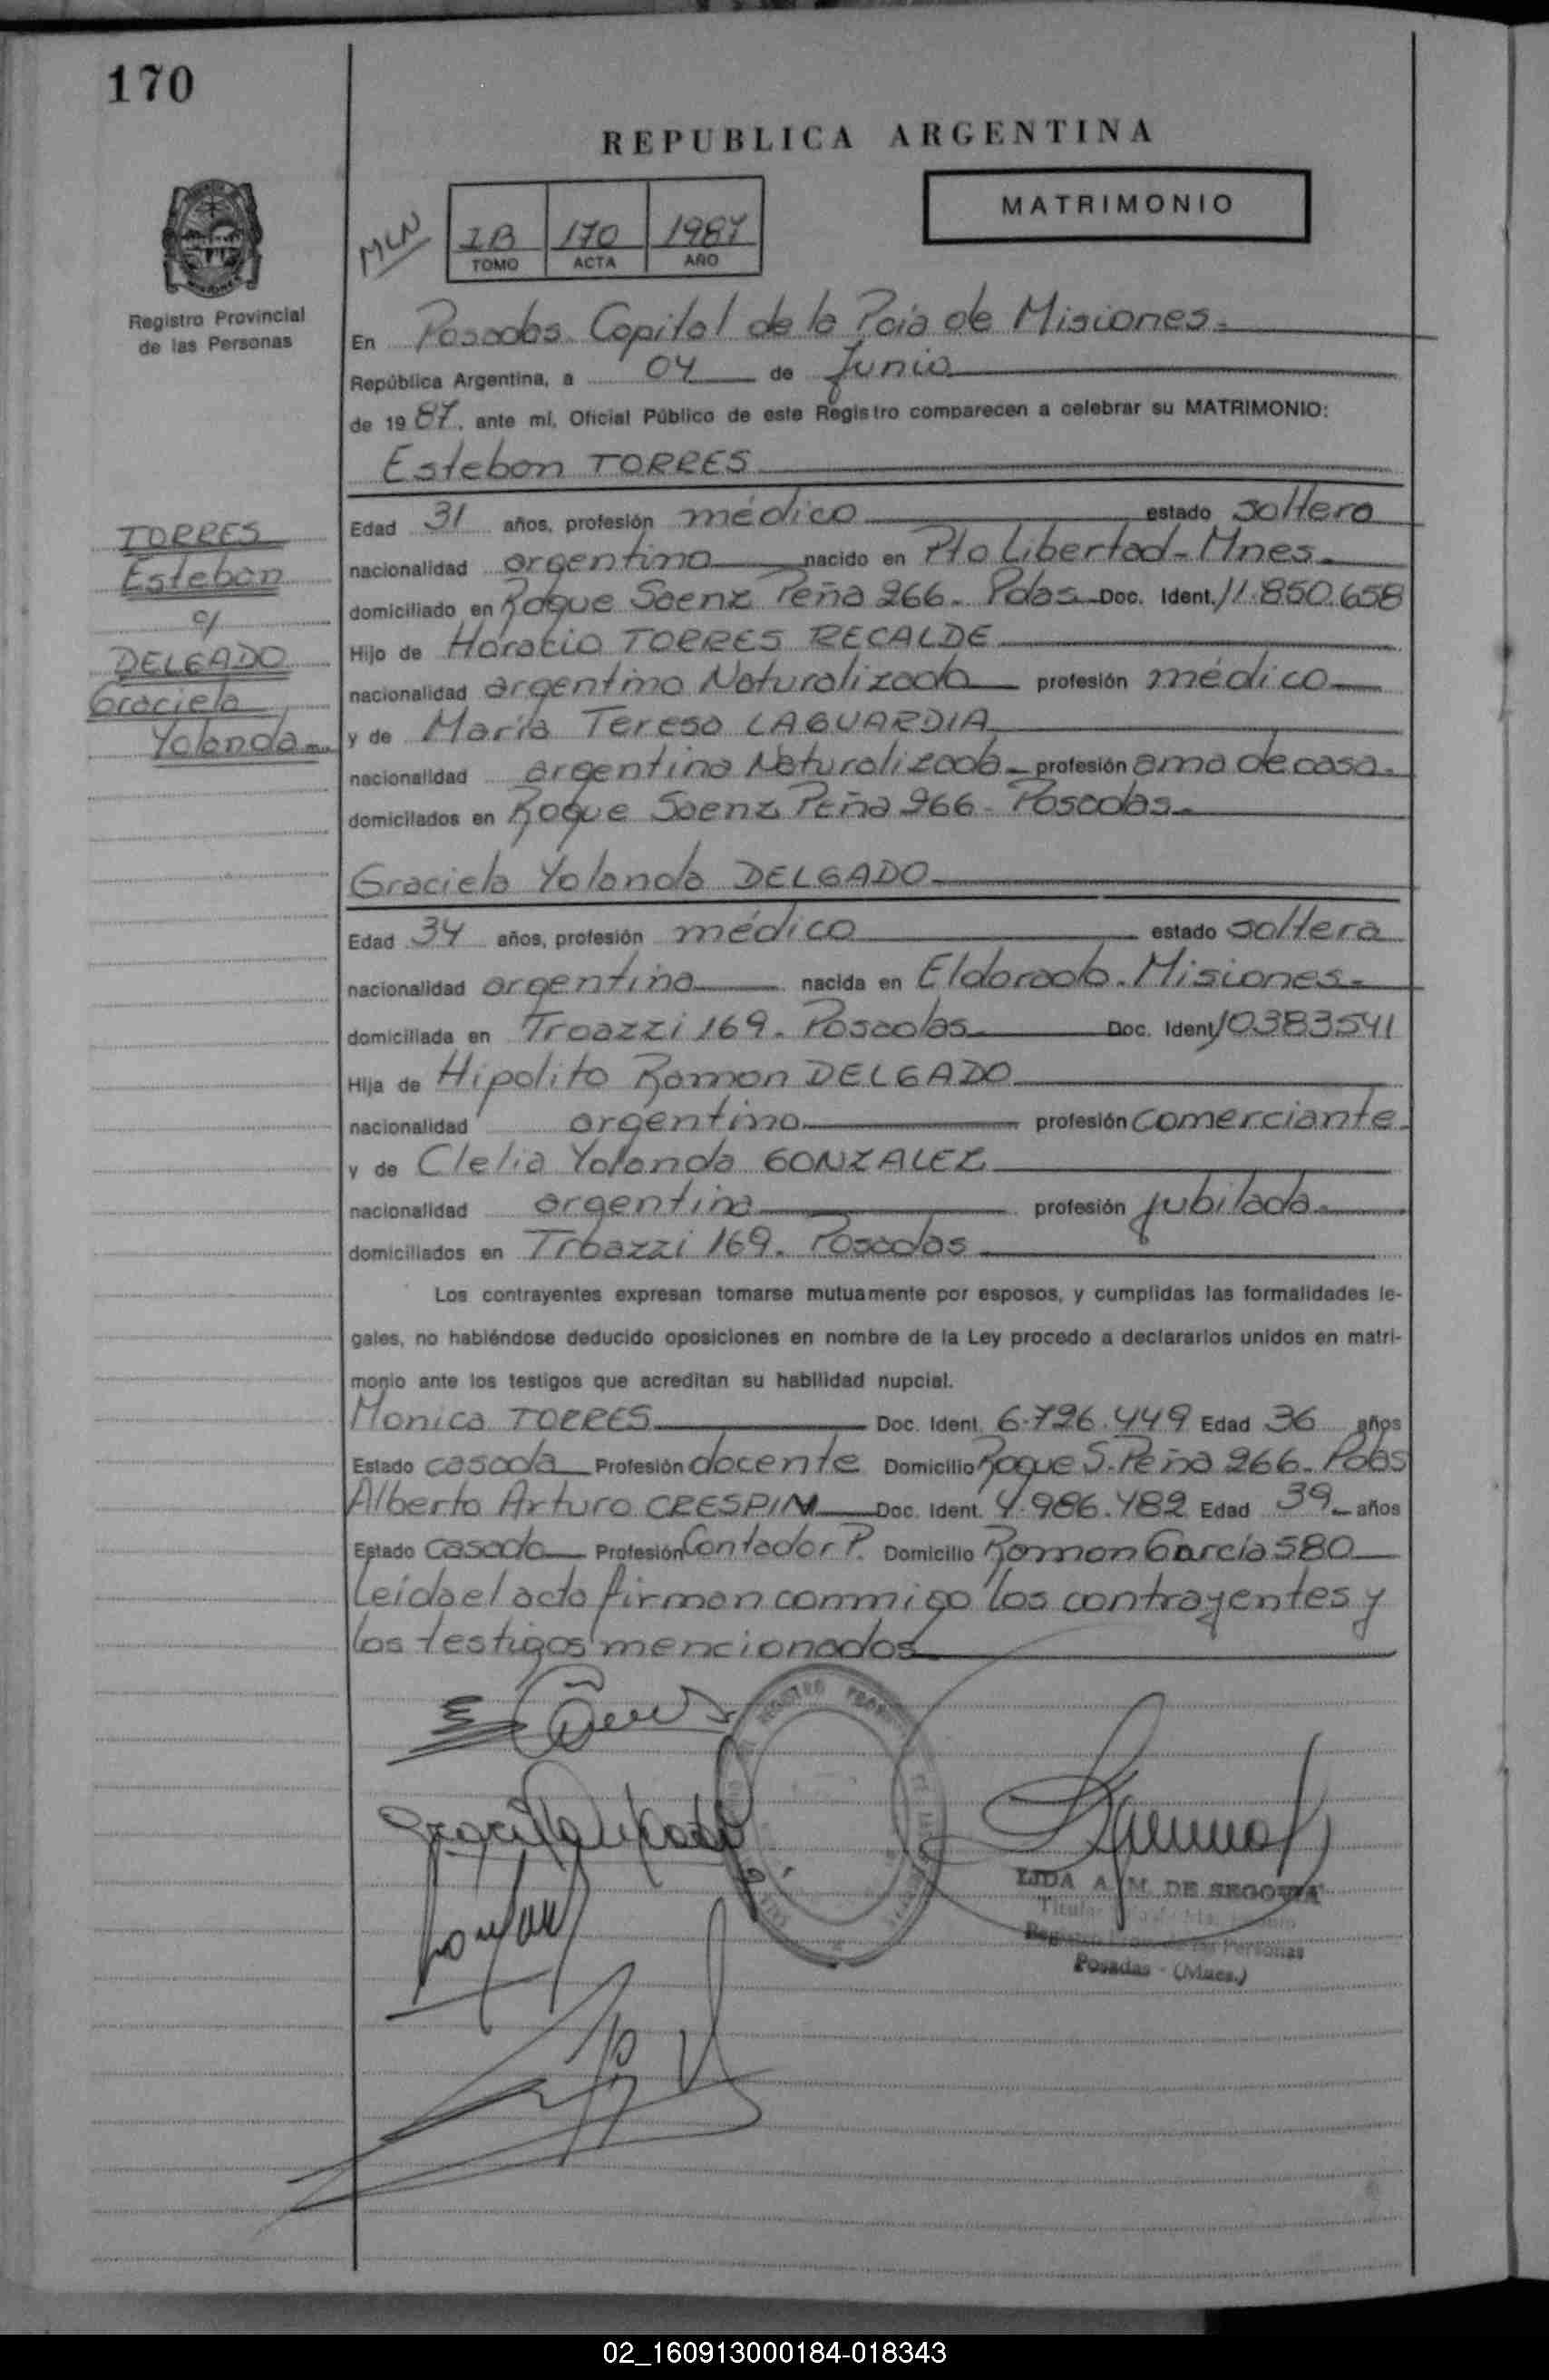 170
REPUBLICA ARGENTINA
MATRIMONIO
MLN
1B 170 1987
TOMO ACTA AÑO
Registro Provincial
de las Personas
En Posadas Capital de la Pcia de Misiones
República Argentina, a 04 de Junio
de 1987, ante mí, Oficial Público de este Registro comparecen a celebrar su MATRIMONIO:
Esteban TORRES
TORRES
Esteban
c/
DELGADO
Graciela
Yolanda
Edad 31 años, profesión médico estado soltero
nacionalidad argentino nacido en Pto Libertad - Mnes.
domiciliado en Roque Saenz Peña 266 - Pdas Doc. Ident. 11.850.658
Hijo de Horacio TORRES RECALDE
nacionalidad argentino Naturalizado profesión médico
y de María Teresa LAGUARDIA
nacionalidad argentina Naturalizada profesión ama de casa.
domiciliados en Roque Saenz Peña 266 - Posadas
Graciela Yolanda DELGADO
Edad 34 años, profesión médico estado soltera
nacionalidad argentina nacida en Eldorado. Misiones
domiciliada en Troazzi 169. Posadas Doc. Ident. 10383541
Hija de Hipolito Ramon DELGADO
nacionalidad argentino profesión comerciante
y de Clelia Yolanda GONZALEZ
nacionalidad argentina profesión jubilada
domiciliados en Troazzi 169. Posadas
Los contrayentes expresan tomarse mutuamente por esposos, y cumplidas las formalidades le-
gales, no habiéndose deducido oposiciones en nombre de la Ley procedo a declararlos unidos en matri-
monio ante los testigos que acreditan su habilidad nupcial.
Monica TORRES Doc. Ident. 6.726.449 Edad 36 años
Estado casada Profesión docente Domicilio Roque S. Peña 266. Pdas
Alberto Arturo CRESPIN Doc. Ident. 4.986.482 Edad 39 años
Estado casado Profesión Contador P. Domicilio Ramon García 580
Leída el acta firman conmigo los contrayentes y
los testigos mencionados
LIDA A. M. DE SEGOVIA
Titular
de las Personas
Posadas - (Mnes.)
02_160913000184-018343